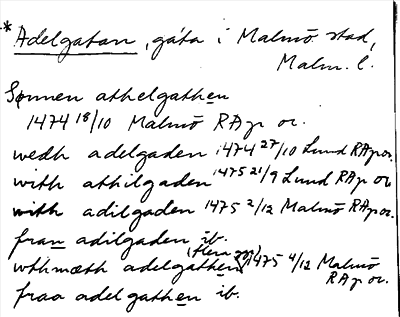 * Adelgatan, gata i Malmö stad,
Malm. l.
Sønnen athelgathen
1474 18/10 Malmö RAp or.
wedh adelgaden 1474 27/10 Lund RAp or.
with athilgaden 1475 21/9 Lund RAp or
with adilgaden 1475 2/12 Malmö RAp or.
fran adilgaden ib.
(flera ggr)
wthmæth adelgathen 1475 4/12 Malmö
RAp or.
fraa adelgathen ib.